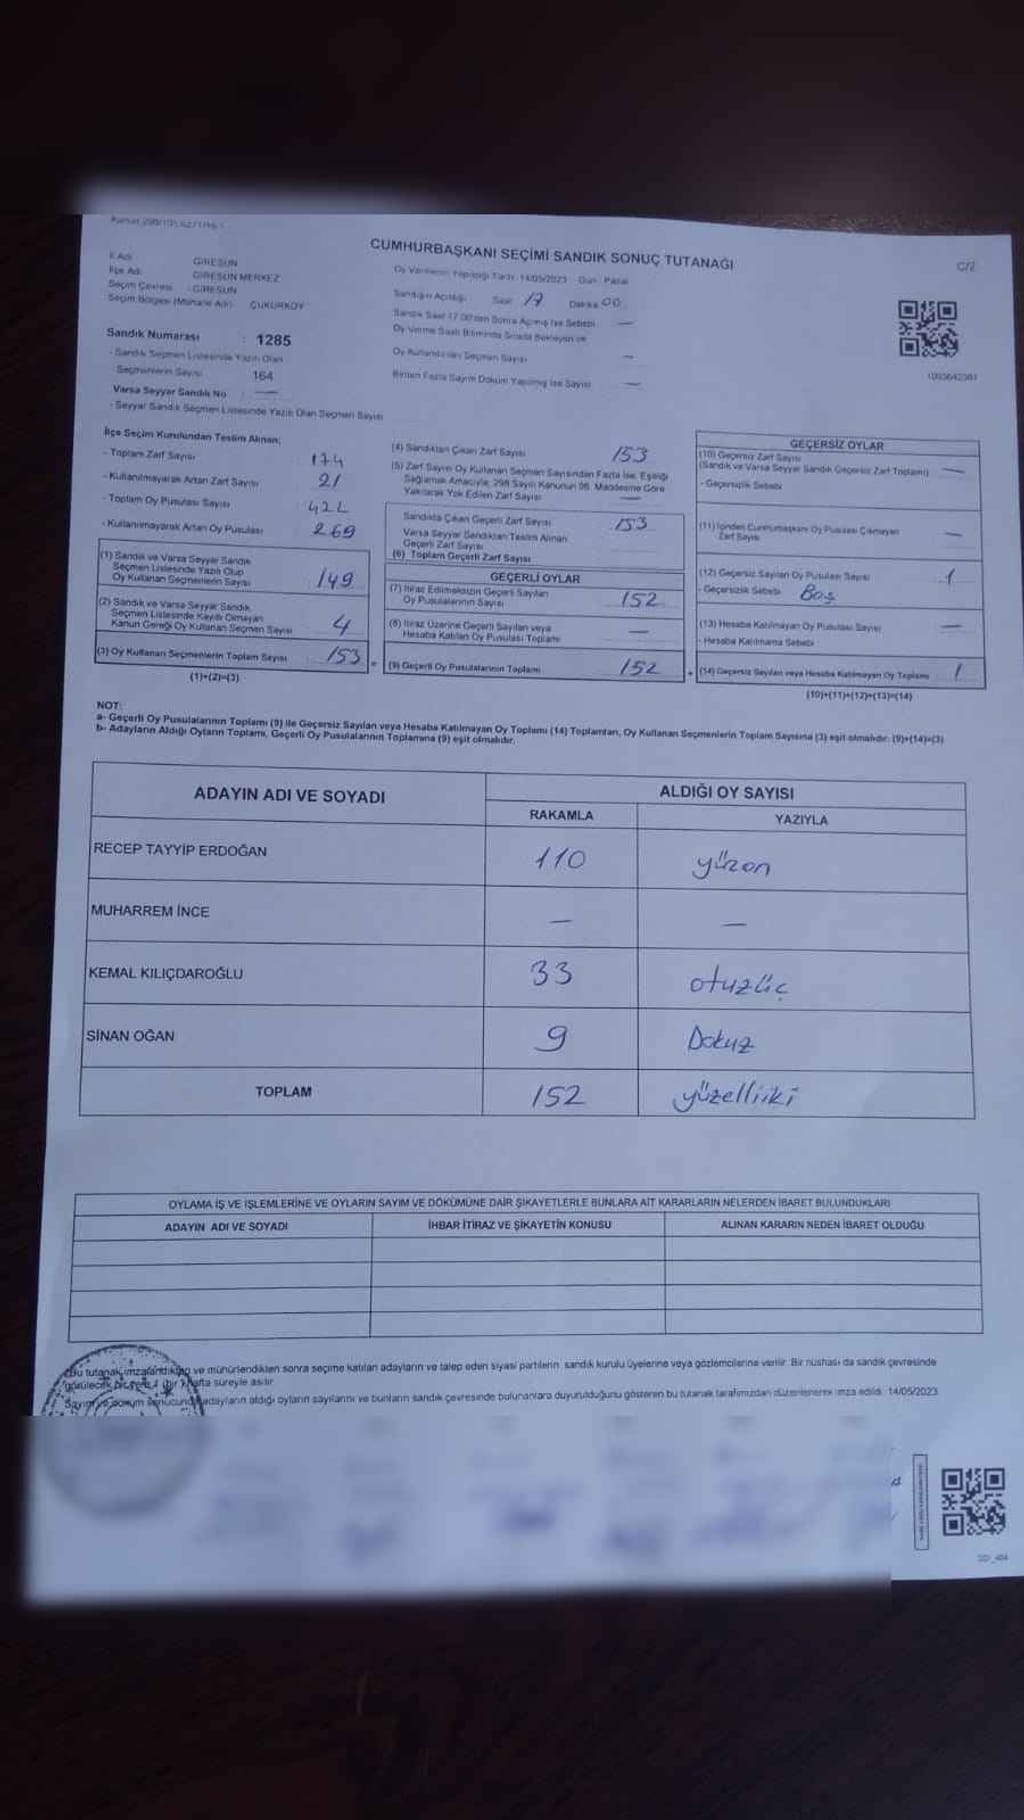 CUMHURBAŞKANI SEÇİMİ SANDIK SONUÇ TUTANAĞI
C/2
İl Adı GİRESUN
İlçe Adı GİRESUN MERKEZ
Seçim Çevresi GİRESUN
Seçim Bölgesi (Muhtarlık Adı) ÇUKURKÖY
Oy Vermenin Yapıldığı Tarih 14/05/2023 Gün Pazar
Sandığın Açıldığı Saat 17 Dakika 00
Sandık Saat 17.00'den Sonra Açılmış İse Sebebi —
Sandık Numarası : 1285
- Sandık Seçmen Listesinde Yazılı Olan
Seçmenlerin Sayısı 164
Varsa Seyyar Sandık No —
- Seyyar Sandık Seçmen Listesinde Yazılı Olan Seçmen Sayısı
Oy Verme Saati Bitiminde Sırada Bekleyen ve
Oy Kullandırılan Seçmen Sayısı —
Birden Fazla Sayım Döküm Yapılmış İse Sayısı —
İlçe Seçim Kurulundan Teslim Alınan;
- Toplam Zarf Sayısı 174
- Kullanılmayarak Artan Zarf Sayısı 21
- Toplam Oy Pusulası Sayısı 422
- Kullanılmayarak Artan Oy Pusulası 269
(1) Sandık ve Varsa Seyyar Sandık
Seçmen Listesinde Yazılı Olup
Oy Kullanan Seçmenlerin Sayısı 149
(2) Sandık ve Varsa Seyyar Sandık
Seçmen Listesinde Kayıtlı Olmayan
Kanun Gereği Oy Kullanan Seçmen Sayısı 4
(3) Oy Kullanan Seçmenlerin Toplam Sayısı 153 =
(1)+(2)=(3)
(4) Sandıktan Çıkan Zarf Sayısı 153
(5) Zarf Sayısı Oy Kullanan Seçmen Sayısından Fazla İse, Eşitliği
Sağlamak Amacıyla, 298 Sayılı Kanunun 98. Maddesine Göre
Yakılarak Yok Edilen Zarf Sayısı —
Sandıkta Çıkan Geçerli Zarf Sayısı 153
Varsa Seyyar Sandıktan Teslim Alınan
Geçerli Zarf Sayısı
(6) Toplam Geçerli Zarf Sayısı
GEÇERLİ OYLAR
(7) İtiraz Edilmeksizin Geçerli Sayılan
Oy Pusulalarının Sayısı 152
(8) İtiraz Üzerine Geçerli Sayılan veya
Hesaba Katılan Oy Pusulası Toplamı —
(9) Geçerli Oy Pusulalarının Toplamı 152 +
GEÇERSİZ OYLAR
(10) Geçersiz Zarf Sayısı
(Sandık ve Varsa Seyyar Sandık Geçersiz Zarf Toplamı) —
- Geçersizlik Sebebi
(11) İçinden Cumhurbaşkanı Oy Pusulası Çıkmayan
Zarf Sayısı —
(12) Geçersiz Sayılan Oy Pusulası Sayısı 1
- Geçersizlik Sebebi Boş
(13) Hesaba Katılmayan Oy Pusulası Sayısı —
- Hesaba Katılmama Sebebi
(14) Geçersiz Sayılan veya Hesaba Katılmayan Oy Toplamı 1
(10)+(11)+(12)+(13)=(14)
NOT:
a- Geçerli Oy Pusulalarının Toplamı (9) ile Geçersiz Sayılan veya Hesaba Katılmayan Oy Toplamı (14) Toplamları, Oy Kullanan Seçmenlerin Toplam Sayısına (3) eşit olmalıdır. (9)+(14)=(3)
b- Adayların Aldığı Oyların Toplamı, Geçerli Oy Pusulalarının Toplamına (9) eşit olmalıdır.
ADAYIN ADI VE SOYADI
ALDIĞI OY SAYISI
RAKAMLA YAZIYLA
RECEP TAYYİP ERDOĞAN 110 yüzon
MUHARREM İNCE — —
KEMAL KILIÇDAROĞLU 33 otuzüç
SİNAN OĞAN 9 Dokuz
TOPLAM 152 yüzelliiki
OYLAMA İŞ VE İŞLEMLERİNE VE OYLARIN SAYIM VE DÖKÜMÜNE DAİR ŞİKAYETLERLE BUNLARA AİT KARARLARIN NELERDEN İBARET BULUNDUKLARI
ADAYIN ADI VE SOYADI İHBAR İTİRAZ VE ŞİKAYETİN KONUSU ALINAN KARARIN NEDEN İBARET OLDUĞU
Bu tutanak imzalandıktan ve mühürlendikten sonra seçime katılan adayların ve talep eden siyasi partilerin sandık kurulu üyelerine veya gözlemcilerine verilir. Bir nüshası da sandık çevresinde
görülecek bir yere 1 (bir) hafta süreyle asılır.
Sayım ve döküm sonucunda adayların aldığı oyların sayılarını ve bunların sandık çevresinde bulunanlara duyurulduğunu gösteren bu tutanak tarafımızdan düzenlenerek imza edildi. 14/05/2023